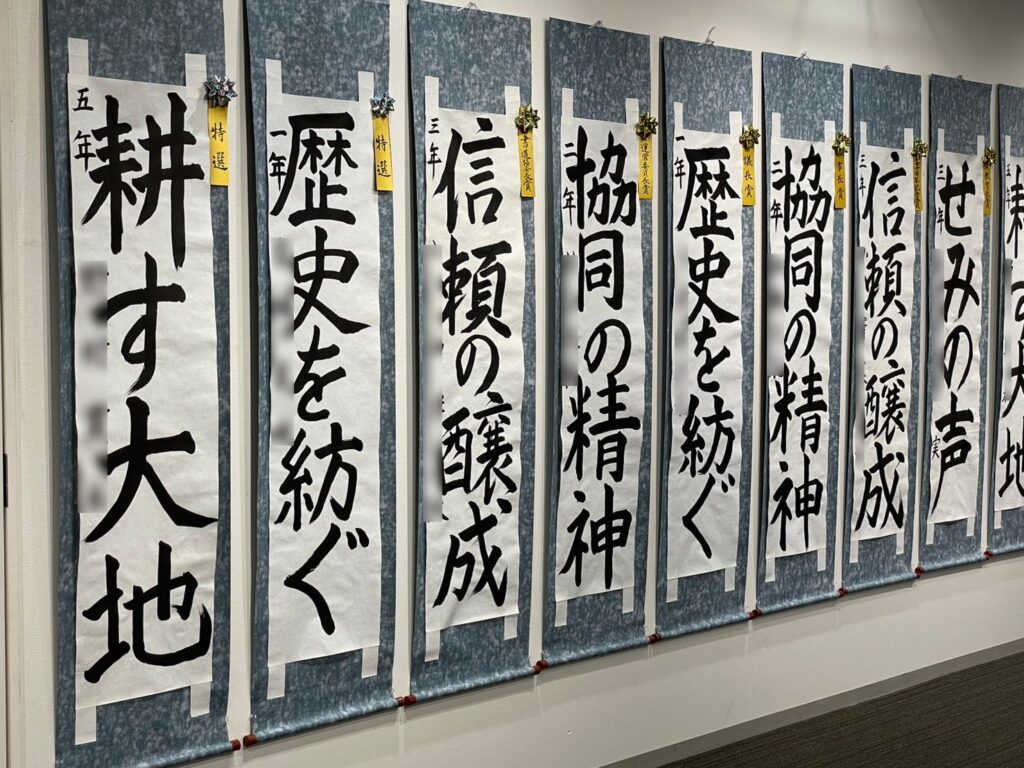 五年
耕す大地
特選
一年
歴史を紡ぐ
特選
三年
信頼の醸成
書道協会長賞
二年
協同の精神
運営委員長賞
一年
歴史を紡ぐ
議長賞
二年
協同の精神
三年
信頼の醸成
三年
せみの声
実
五年
耕す大地